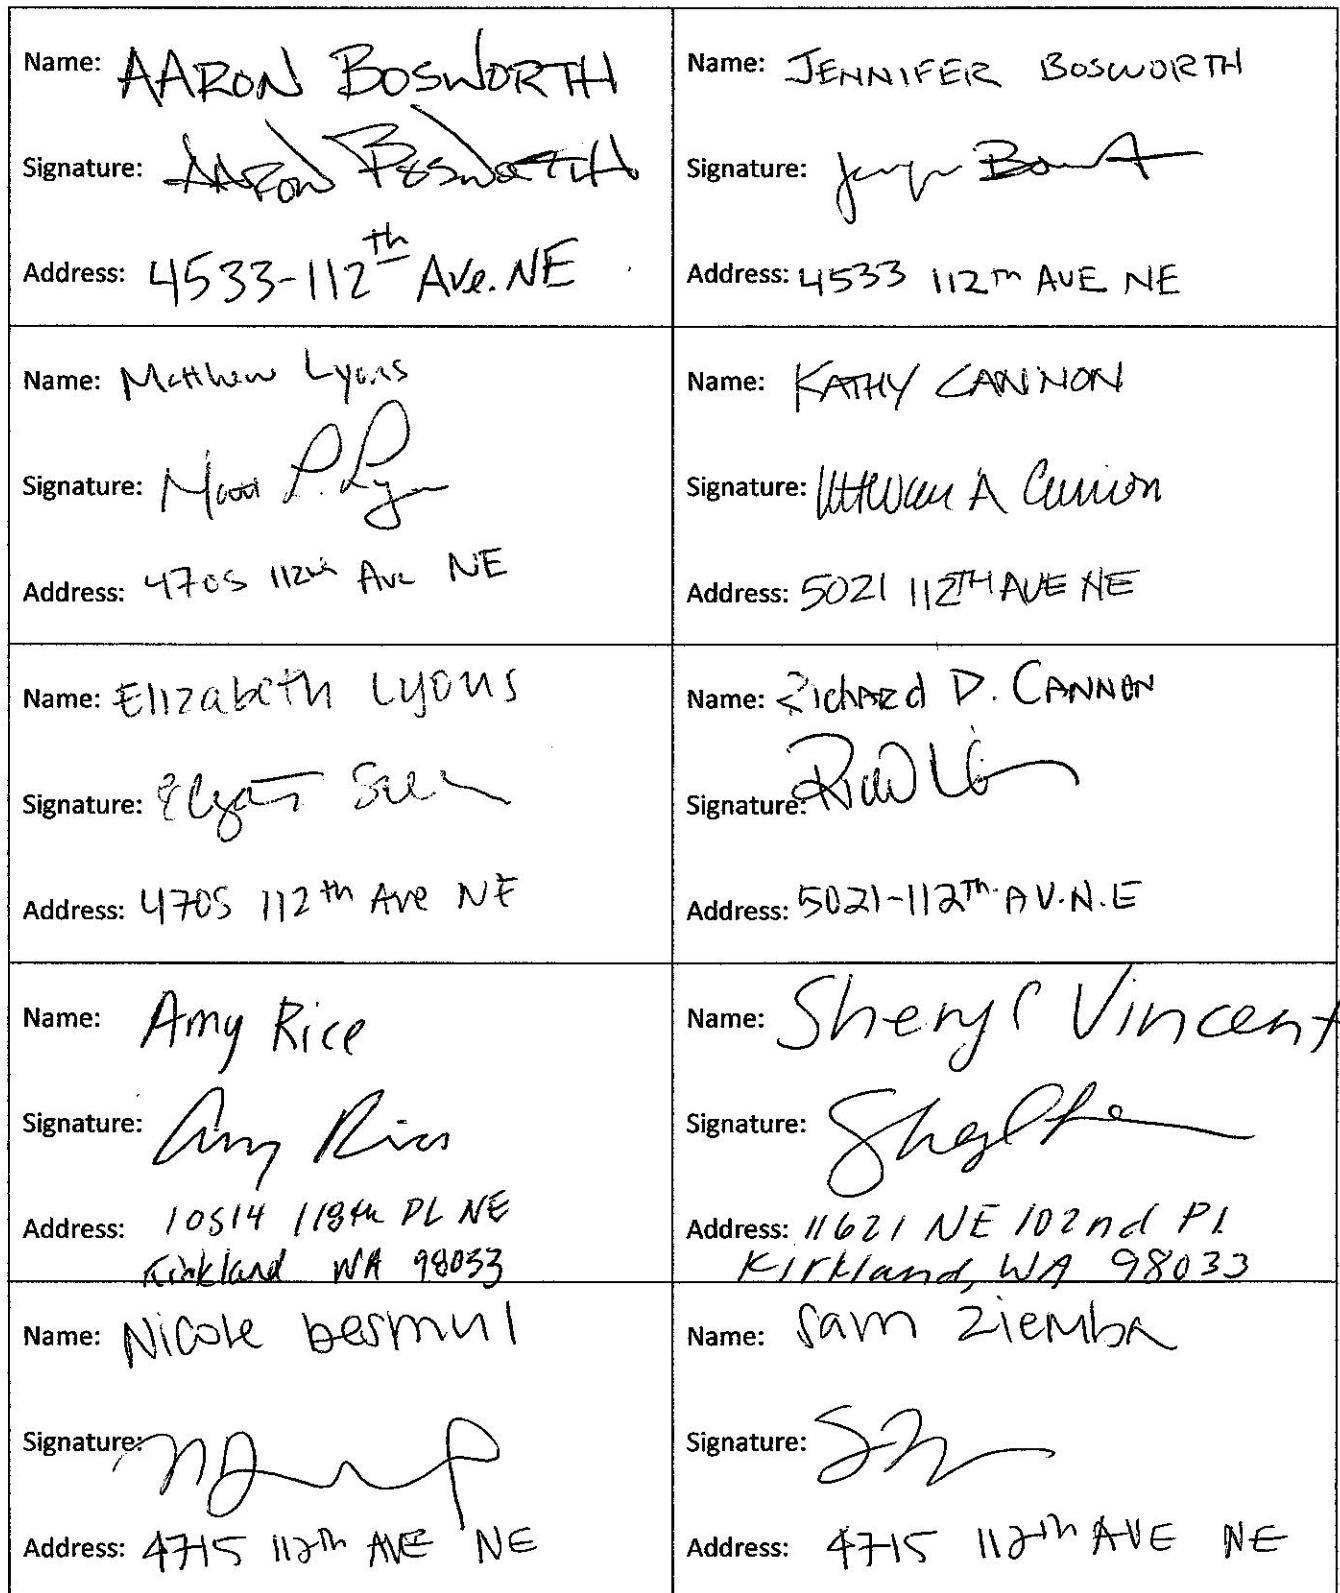 Name: AARON BOSWORTH
Signature: AARON BOSWORTH
Address: 4533-112th Ave. NE
Name: JENNIFER BOSWORTH
Signature:
Address: 4533 112TH AVE NE
Name: Matthew Lyons
Signature: Matt P. Lyon
Address: 4705 112th Ave NE
Name: KATHY CANNON
Signature: A Cannon
Address: 5021 112TH AVE NE
Name: Elizabeth Lyons
Signature:
Address: 4705 112th Ave NE
Name: Richard D. CANNON
Signature:
Address: 5021-112Th. AV.N.E
Name: Amy Rice
Signature: Amy Rice
Address: 10514 118th PL NE
Kirkland WA 98033
Name: Sheryl Vincent
Signature:
Address: 11621 NE 102nd Pl
Kirkland, WA 98033
Name: Nicole
Signature:
Address: 4715 112th AVE NE
Name: Sam Ziemba
Signature:
Address: 4715 112th AVE NE